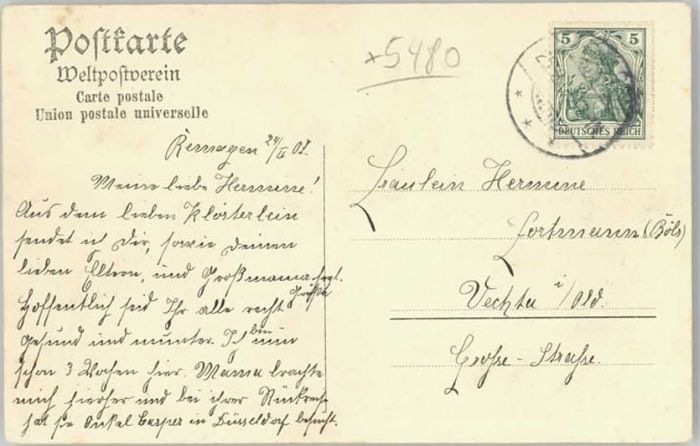 Postkarte
Weltpostverein
Carte postale
Union postale universelle
5480
5 5
DEUTSCHES REICH
Remagen 24/II 08.
Meine liebe Hermine!
Aus dem lieben Klösterlein
sendet ich Dir, sowie Deinen
lieben Eltern, und Großmama frdl.
Grüße
Hoffentlich seid Ihr alle recht
gesund und munter. Ich bin nun
schon 3 Wochen hier. Mama brachte
mich hierher und bei ihrer Rückreise
hat sie Onkel Casper in Düsseldorf besucht.
Fräulein Hermine
Fortmann (Böls)
Vechta i/Old.
Große-Straße.